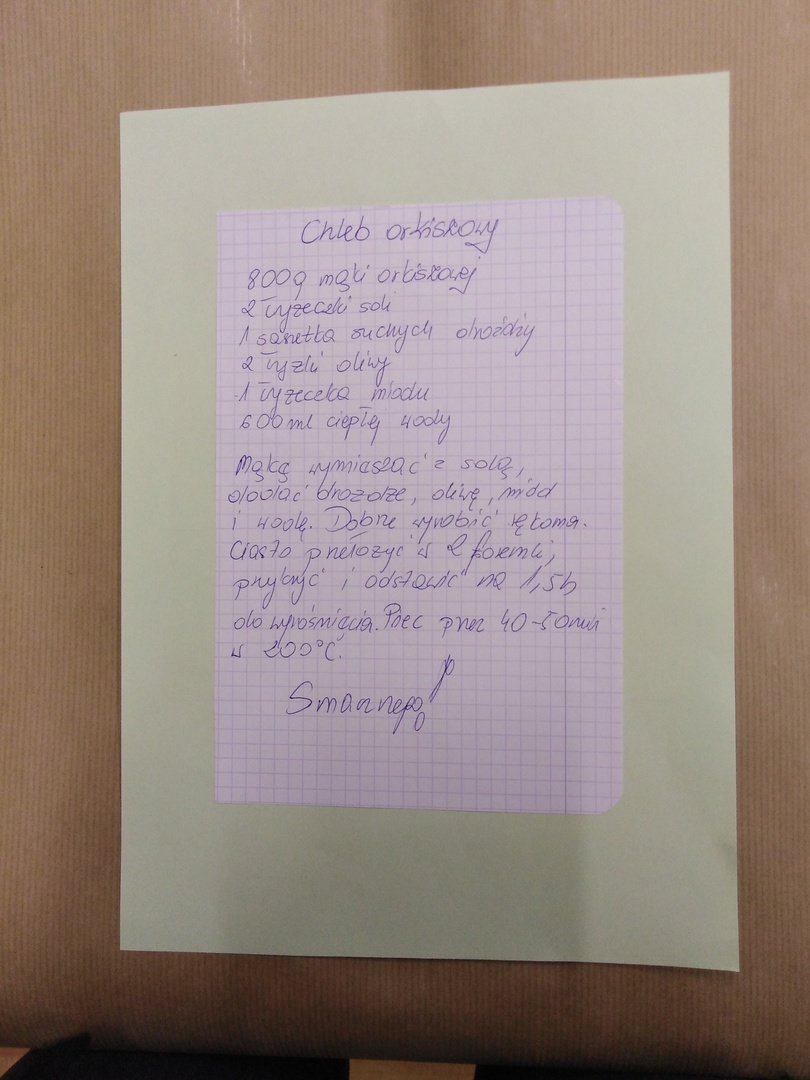 Chleb orkiszowy
800g mąki orkiszowej
2 łyżeczki soli
1 saszetka suchych drożdży
2 łyżki oliwy
1 łyżeczka miodu
600ml ciepłej wody
Mąkę wymieszać z solą,
dodać drożdże, oliwę, miód
i wodę. Dobrze wyrobić rękoma.
Ciasto przełożyć w 2 foremki,
przykryć i odstawić na 1,5h
do wyrośnięcia. Piec przez 40-50min
w 200°C.
Smacznego